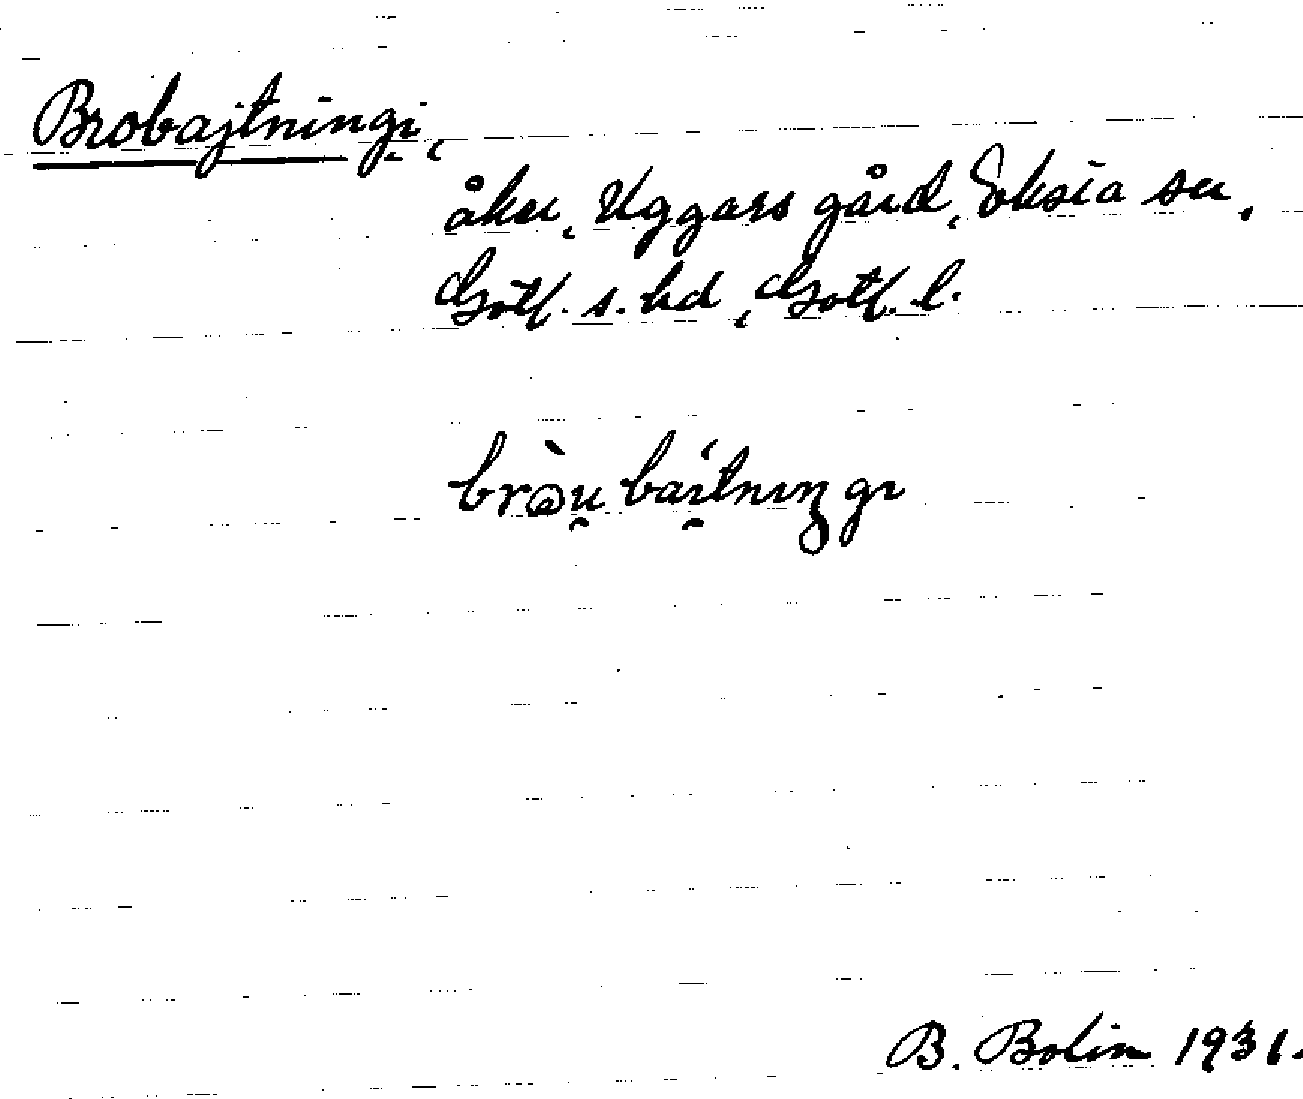 Brobajtningi,
åker, Uggars gård, Eksta sn,
Gotl. s. hd, Gotl. l.
brò̱u̯ bai̯tnıŋ gı
B. Bolin 1931.